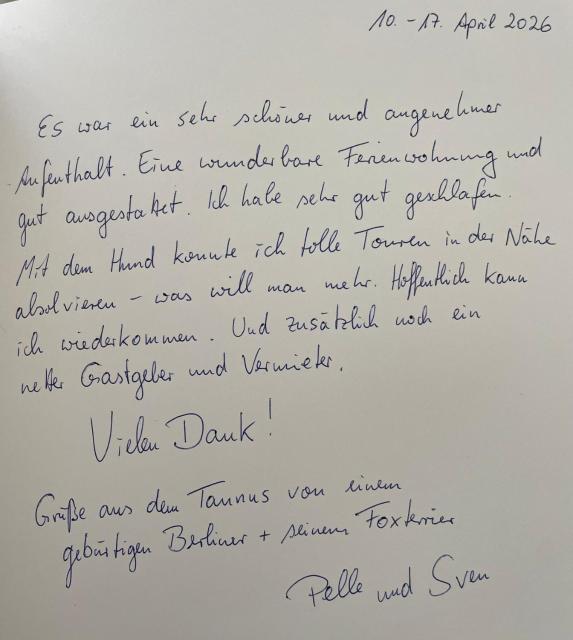 10. - 17. April 2026
Es war ein sehr schöner und angenehmer
Aufenthalt. Eine wunderbare Ferienwohnung und
gut ausgestattet. Ich habe sehr gut geschlafen.
Mit dem Hund konnte ich tolle Touren in der Nähe
absolvieren – was will man mehr. Hoffentlich kann
ich wiederkommen. Und zusätzlich noch ein
netter Gastgeber und Vermieter.
Vielen Dank!
Grüße aus dem Taunus von einem
gebürtigen Berliner + seinem Foxterrier
Pelle und Sven